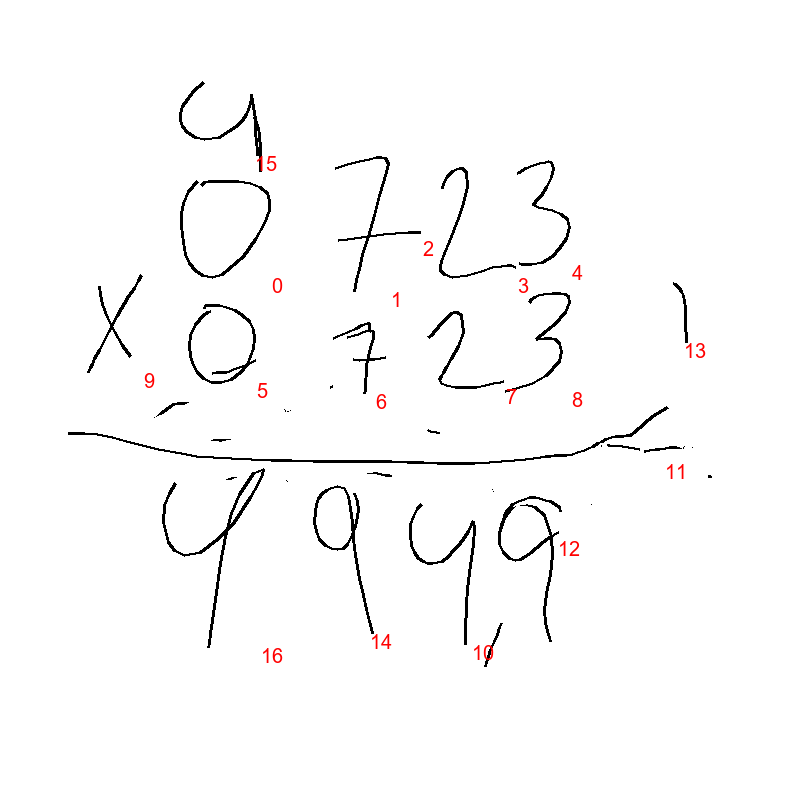 4
15
0 7 2 3
2
0 1 3 4
x 0 7 2 3 1
13
9 5 6 7 8
11
4 9 4, 9
12
16 14 10